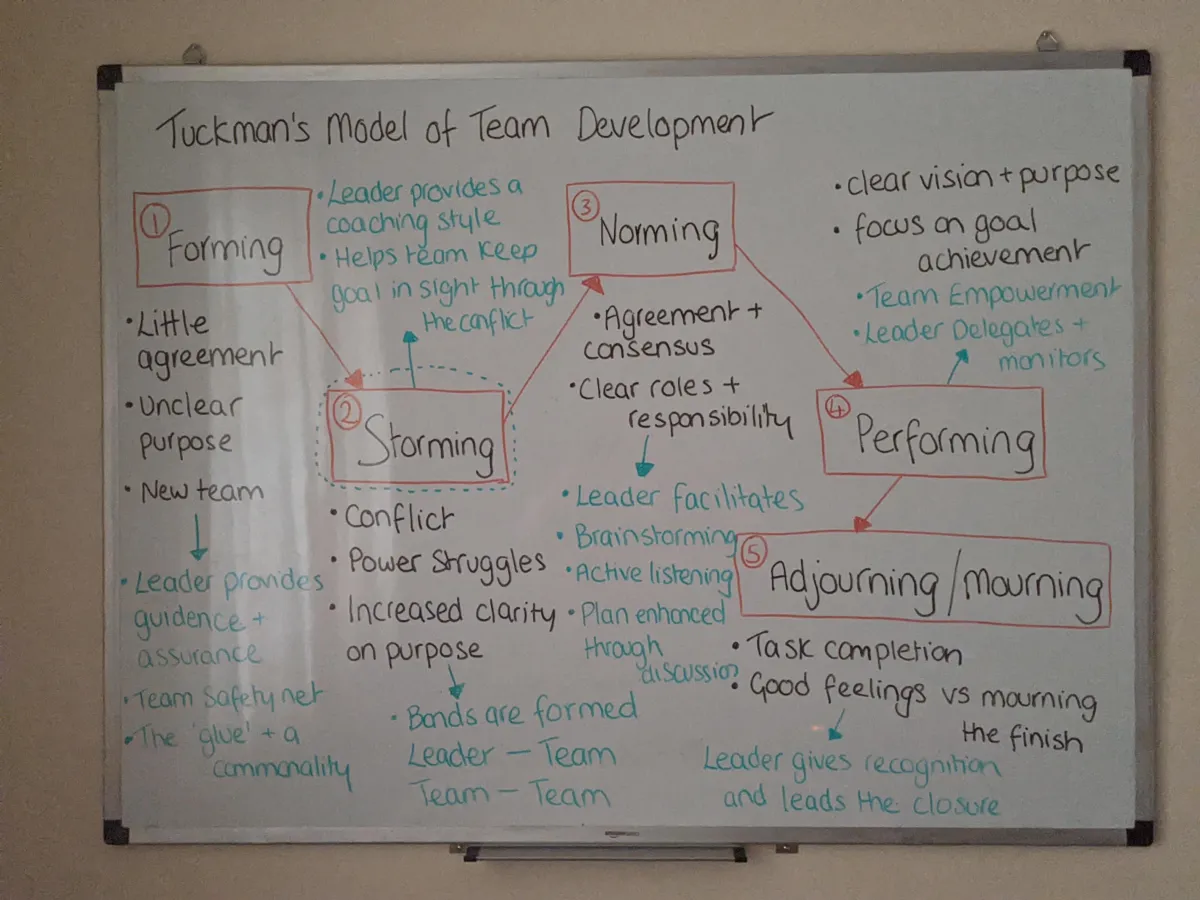 Tuckman's Model of Team Development
① Forming
• Little
agreement
• Unclear
purpose
• New team
• Leader provides
guidence +
assurance
• Team Safety net
• The 'glue' + a
commonality
• Leader provides a
coaching style
• Helps team keep
goal in sight through
the conflict
② Storming
• Conflict
• Power Struggles
• Increased clarity
on purpose
• Bonds are formed
Leader – Team
Team – Team
③ Norming
• Agreement +
consensus
• Clear roles +
responsibility
• Leader facilitates
• Brainstorming
• Active listening
• Plan enhanced
through
discussion
• clear vision + purpose
• focus on goal
achievement
• Team Empowerment
• Leader Delegates +
monitors
④ Performing
⑤ Adjourning/mourning
• Task completion
• Good feelings vs mourning
the finish
Leader gives recognition
and leads the closure